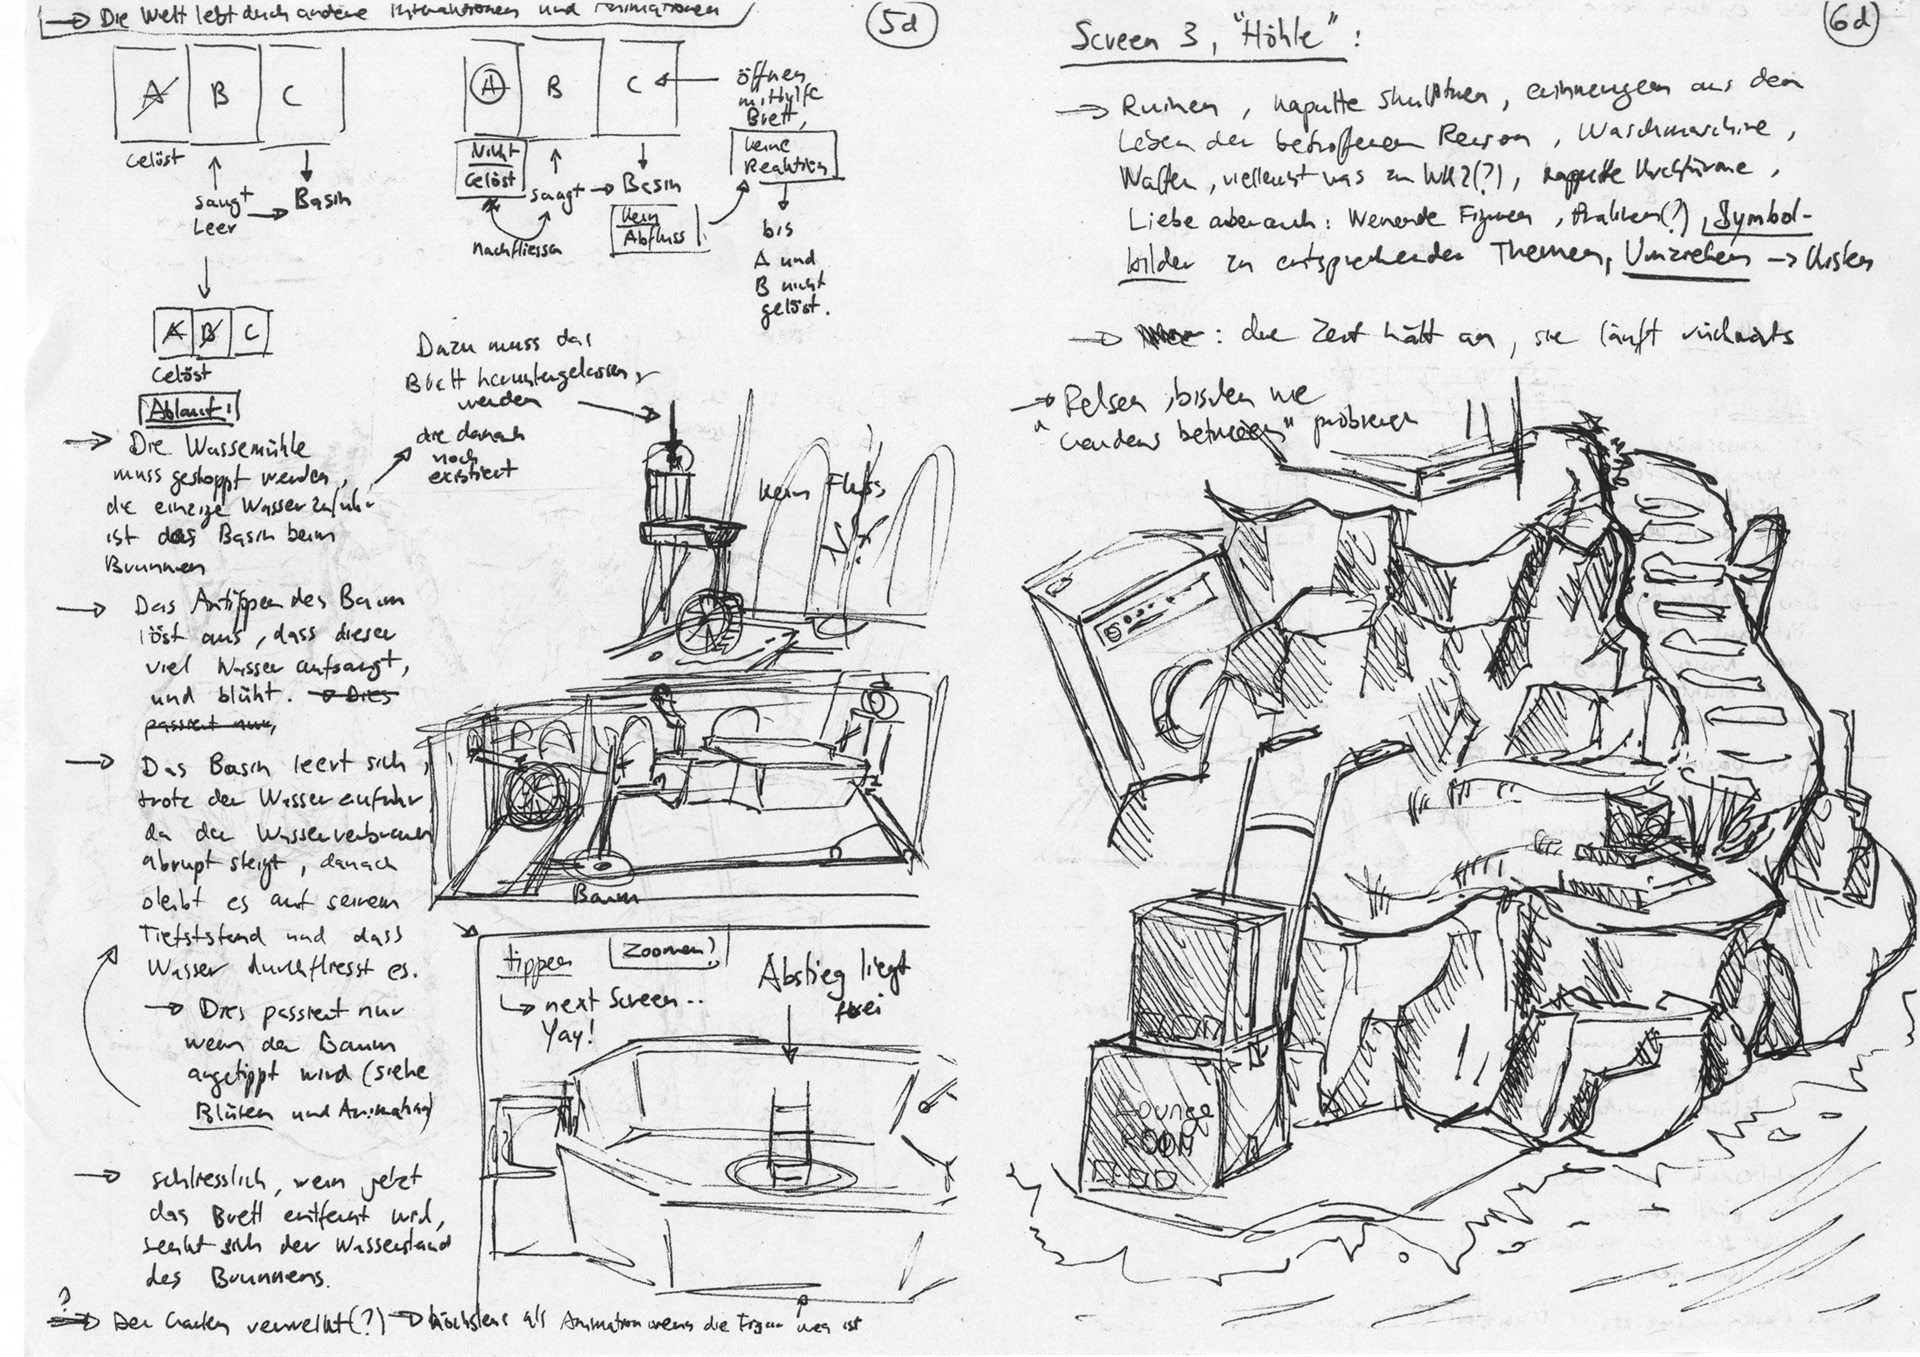 → Die Welt lebt durch andere Interaktionen und Animationen
5d
A B C
Gelöst
saugt
Leer
→ Basin
A B C
Gelöst
A B C
Nicht
Gelöst
saugt → Basin
Nachfliessen
Kein
Abfluss
öffnen
mithilfe
Brett,
keine
Reaktion
bis
A und
B nicht
gelöst.
Ablauf:
→ Die Wassermühle
muss gestoppt werden,
die einzige Wasserzufuhr
ist das Basin beim
Brunnen
Dazu muss das
Brett heruntergelassen
werden
die danach
noch
existiert
kein Fluss
→ Das Antippen des Baum
löst aus, dass dieser
viel Wasser aufsaugt,
und blüht. → Dies
passiert nur,
→ Das Basin leert sich,
trotz der Wasserzufuhr
da der Wasserverbrauch
abrupt steigt, danach
bleibt es auf seinem
Tiefststand und dass
Wasser durchfliesst es.
→ Dies passiert nur
wenn der Baum
angetippt wird (siehe
Blüten und Animation)
→ schliesslich, wenn jetzt
das Brett entfernt wird,
senkt sich der Wasserstand
des Brunnens.
? → Der Garten verwelkt(?) → höchstens als Animation wenn die Figur weg ist
Baum
tippen
Zoomen?
→ next Screen..
Yay!
Abstieg liegt
frei
6d
Screen 3, "Höhle":
→ Ruinen, kaputte Skulpturen, erinnerungen aus dem
Leben der betroffenen Person, Waschmaschine,
Waffen, vielleicht was zu WK2(?), kaputte Kirchtürme,
Liebe aber auch: Weinende Figuren, (?), Symbol-
bilder zu entsprechenden Themen, Umziehen → Kisten
→ : die Zeit hält an, sie läuft rückwärts
→ Felsen, bisschen wie
"Gardens between" probieren
Lounge
ROOM